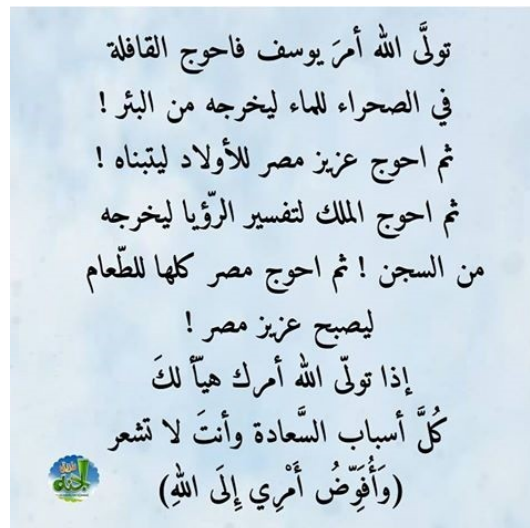 تولَّى الله أمرَ يوسف فاحوج القافلة
في الصحراء للماء ليخرجه من البئر !
ثم احوج عزيز مصر للأولاد ليتبناه !
ثم احوج الملك لتفسير الرّؤيا ليخرجه
من السجن ! ثم احوج مصر كلها للطّعام
ليصبح عزيز مصر !
إذا تولّى الله أمرك هيّأ لكَ
كُلَّ أسباب السَّعادة وأنتَ لا تشعر
(وَأُفَوِّضُ أَمْرِي إِلَى اللهِ)